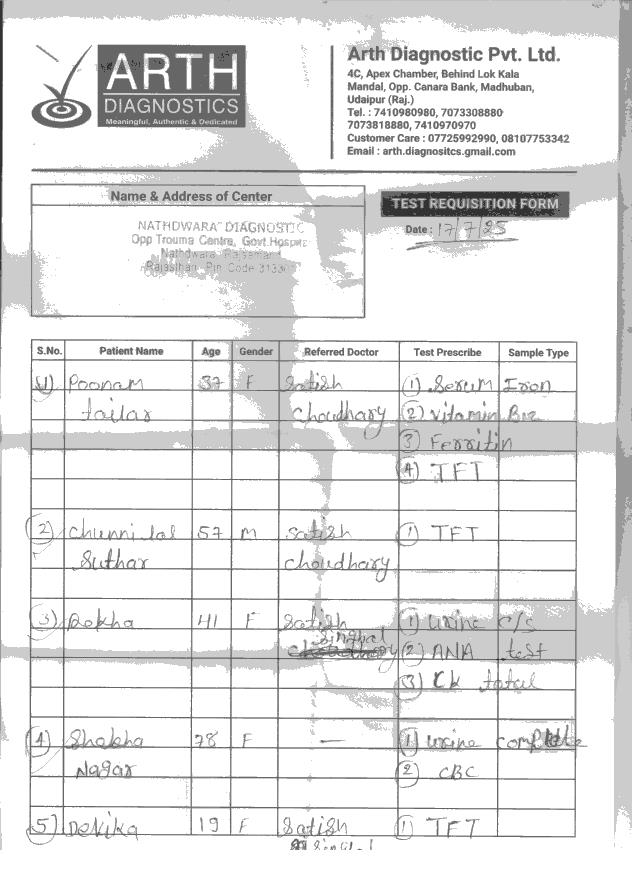 ARTH
DIAGNOSTICS
Meaningful, Authentic & Dedicated
Arth Diagnostic Pvt. Ltd.
4C, Apex Chamber, Behind Lok Kala
Mandal, Opp. Canara Bank, Madhuban,
Udaipur (Raj.)
Tel. : 7410980980, 7073308880
7073818880, 7410970970
Customer Care : 07725992990, 08107753342
Email : arth.diagnositcs.gmail.com
Name & Address of Center
NATHDWARA DIAGNOSTIC
Opp Trauma Centre, Govt.Hospital
Nathdwara
Rajasthan, Pin Code
TEST REQUISITION FORM
Date : 17/7/25
S.No. Patient Name Age Gender Referred Doctor Test Prescribe Sample Type
1) Poonam 37 F Satish 1) Serum Iron
tailar choudhary 2) Vitamin B12
3) Ferritin
4) TFT
2) Chunni lal 57 M Satish 1) TFT
Suthar choudhary
3) Rekha 41 F Satish 1) urine c/s
Singhal 2) ANA test
3) CK total
4) Shekha 78 F — 1) urine complete
Nagar 2) CBC
5) 19 F Satish 1) TFT